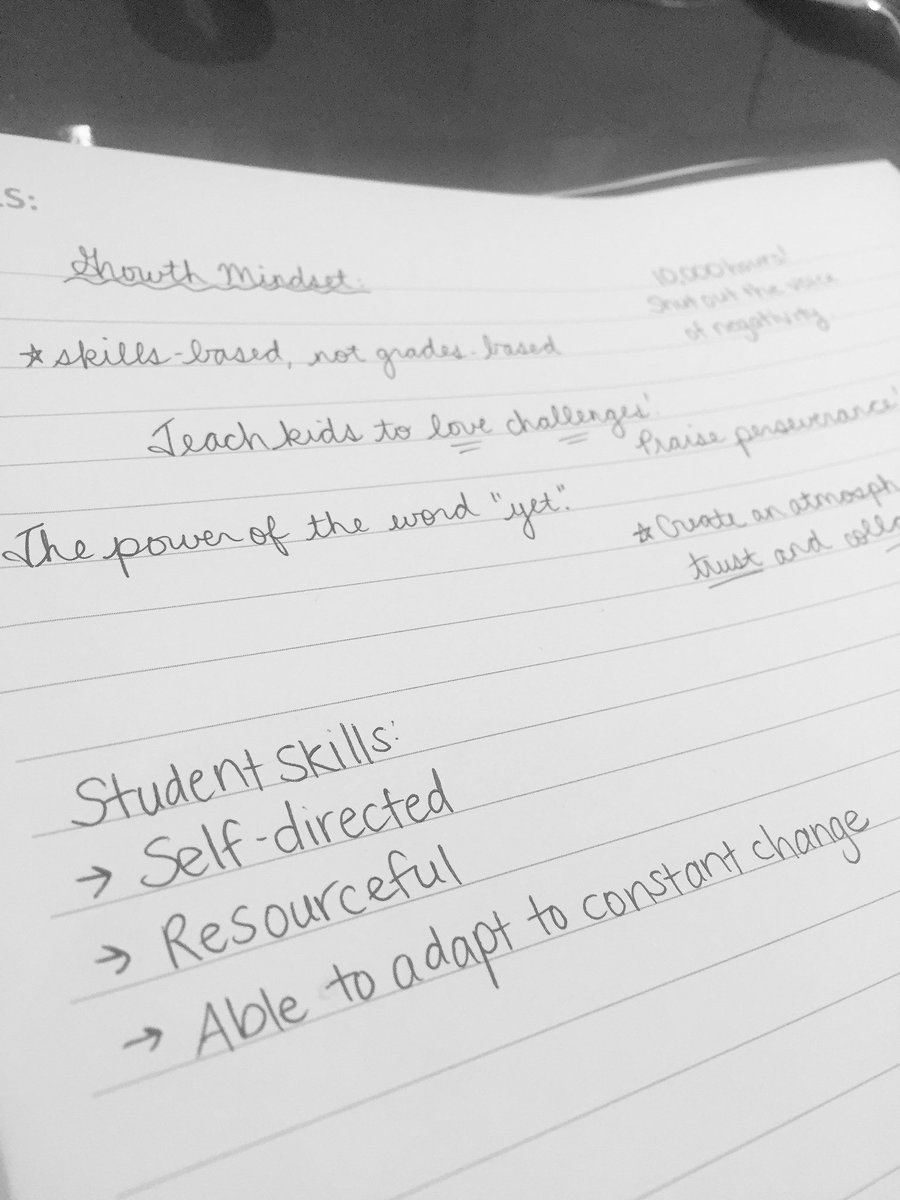 Growth Mindset:
10,000 hours!
Shut out the voice
of negativity.
☆ skills-based, not grades-based
Teach kids to love challenges!
Praise perseverance!
The power of the word "yet".
☆ Create an
trust and
Student Skills:
→ Self-directed
→ Resourceful
→ Able to adapt to constant change